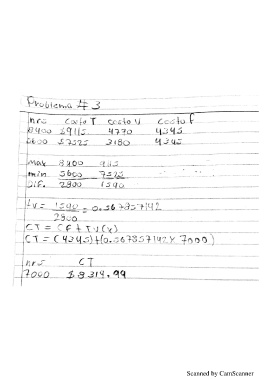 Problema #3
hrs costo T costo V costo f
8400 $9115 4770 4345
5600 $7525 3180 4345
max 8400 9115
min 5600 7525
Dif. 2800 1590
TV = 1590 = 0.567857142
2800
CT = CF + TV(x)
CT = (4345) + (0.567857142 x 7000)
hrs CT
7000 $8319.99
Scanned by CamScanner